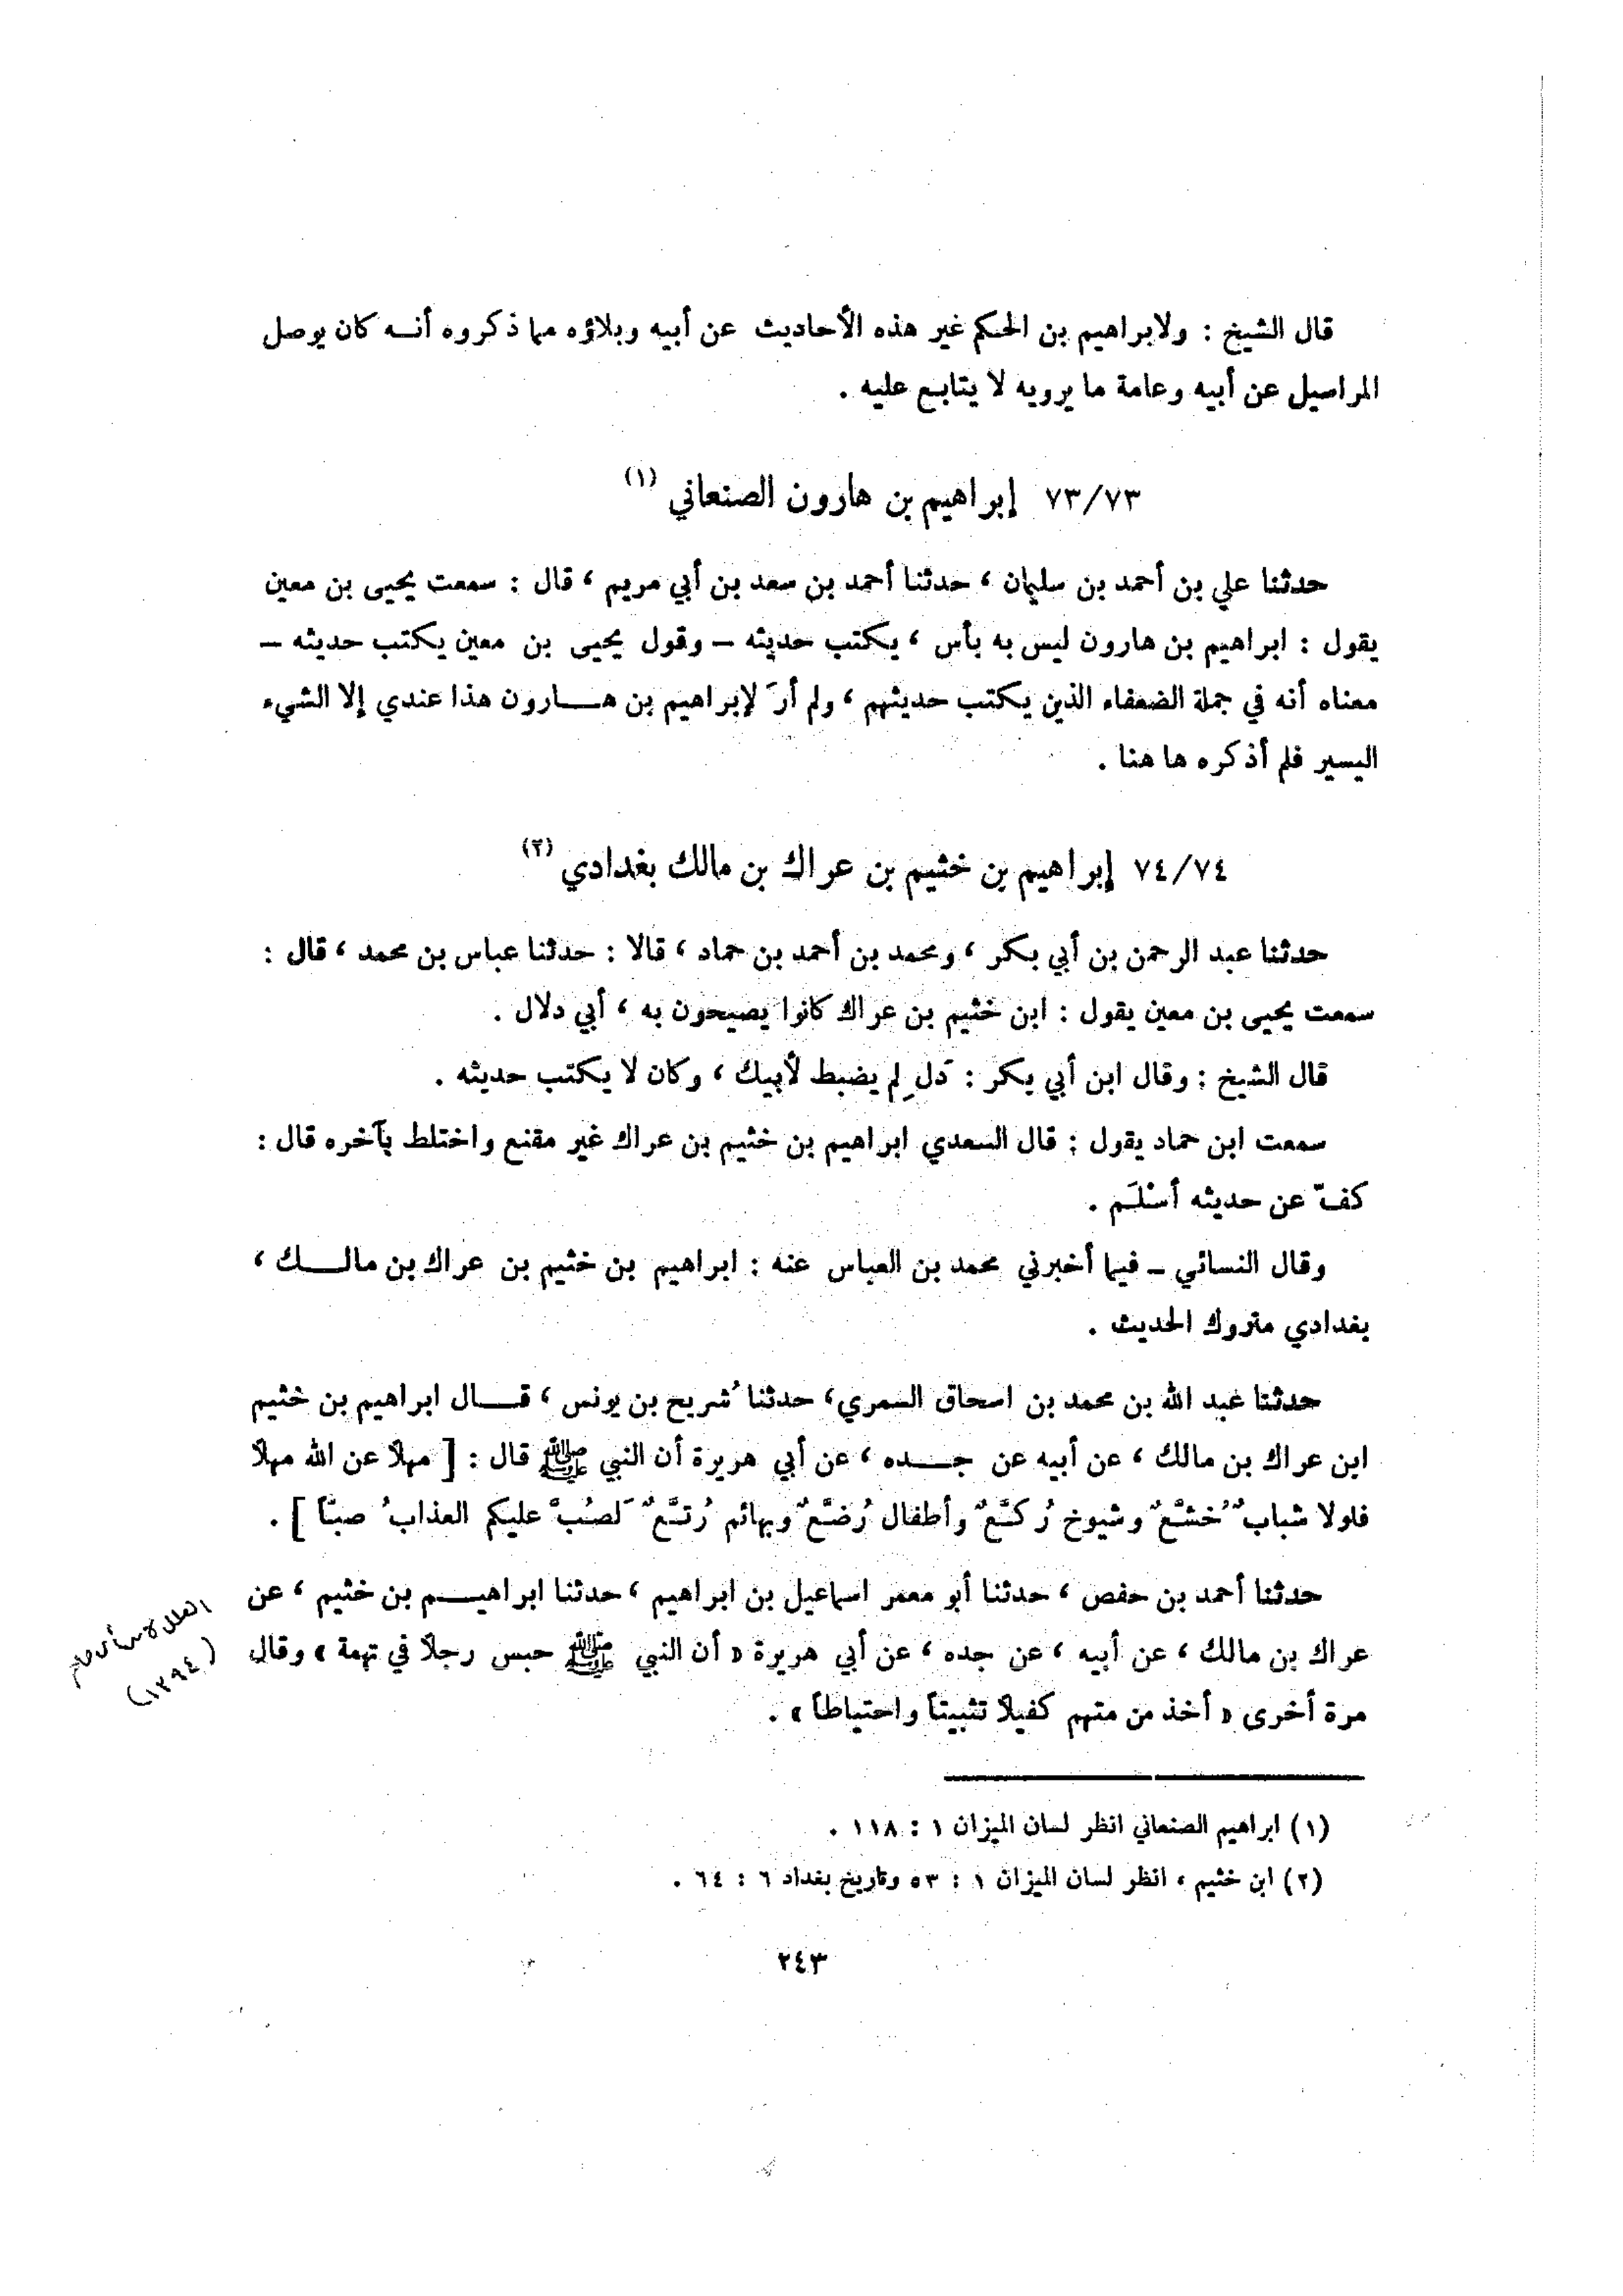 قال الشيخ : ولابراهيم بن الحكم غير هذه الأحاديث عن أبيه وبلاؤه مما ذكروه أنــه كان يوصل
المراسيل عن أبيه وعامة ما يرويه لا يتابع عليه .
٧٣/٧٣ إبراهيم بن هارون الصنعاني (١)
حدثنا علي بن أحمد بن سليمان ، حدثنا أحمد بن سعد بن أبي مريم ، قال : سمعت يحيى بن معين
يقول : ابراهيم بن هارون ليس به بأس ، يكتب حديثه – وقول يحيى بن معين يكتب حديثه –
معناه أنه في جملة الضعفاء الذين يكتب حديثهم ، ولم أرَ لإبراهيم بن هــارون هذا عندي إلا الشيء
اليسير فلم أذكره ها هنا .
٧٤/٧٤ إبراهيم بن خثيم بن عراك بن مالك بغدادي (٢)
حدثنا عبد الرحمن بن أبي بكر ، ومحمد بن أحمد بن حماد ، قالا : حدثنا عباس بن محمد ، قال :
سمعت يحيى بن معين يقول : ابن خثيم بن عراك كانوا يصيحون به ، أبي دلال .
قال الشيخ : وقال ابن أبي بكر : دَل لِم يضبط لأبيك ، وكان لا يكتب حديثه .
سمعت ابن حماد يقول : قال السعدي ابراهيم بن خثيم بن عراك غير مقنع واختلط بآخره قال :
كفّ عن حديثه أسْلَم .
وقال النسائي – فيما أخبرني محمد بن العباس عنه : ابراهيم بن خثيم بن عراك بن مالــك ،
بغدادي متروك الحديث .
حدثنا عبد الله بن محمد بن اسحاق السمري، حدثنا شُريح بن يونس ، قــال ابراهيم بن خثيم
ابن عراك بن مالك ، عن أبيه عن جــده ، عن أبي هريرة أن النبي ﷺ قال : [ مهلاً عن الله مهلاً
فلولا شبابٌ خُشَّعٌ وشيوخ رُكَّعٌ وأطفال رُضَّعٌ وبهائم رُتَّعٌ لَصُبَّ عليكم العذابُ صبّاً ] .
حدثنا أحمد بن حفص ، حدثنا أبو معمر اسماعيل بن ابراهيم ، حدثنا ابراهيــم بن خثيم ، عن
عراك بن مالك ، عن أبيه ، عن جده ، عن أبي هريرة « أن النبي ﷺ حبس رجلاً في تهمة » وقال
مرة أخرى « أخذ من متهم كفيلاً تثبيتاً واحتياطاً » .
العلل لابن أبي حاتم
(١٣٩٤)
(١) ابراهيم الصنعاني انظر لسان الميزان ١ : ١١٨ .
(٢) ابن خثيم ، انظر لسان الميزان ١ : ٥٣ وتاريخ بغداد ٦ : ٦٤ .
٢٤٣